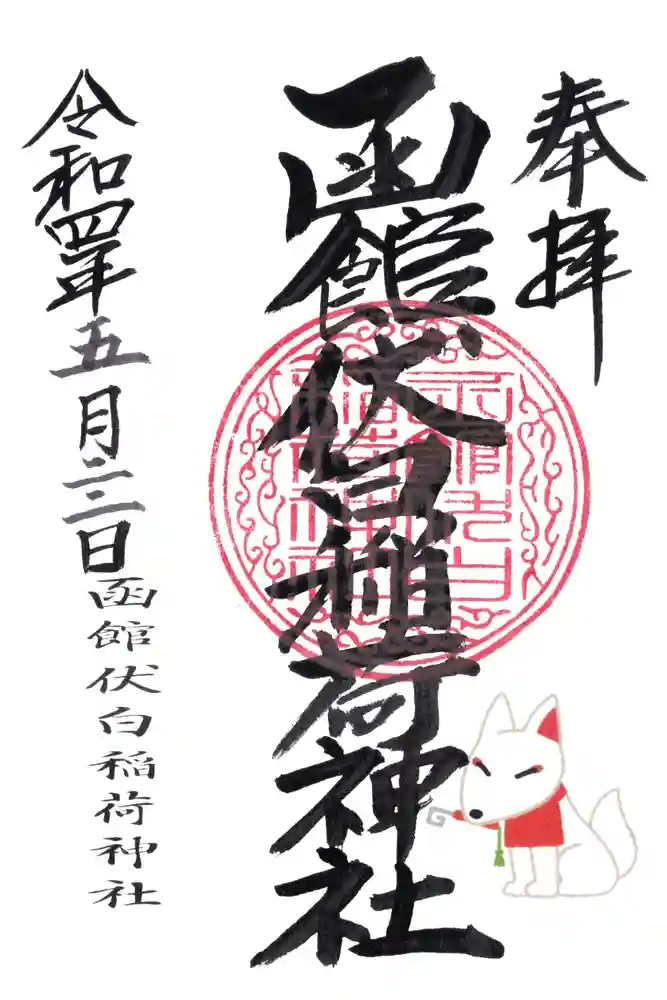 奉拝
函館伏白稲荷神社
令和四年五月三日
函館伏白稲荷神社